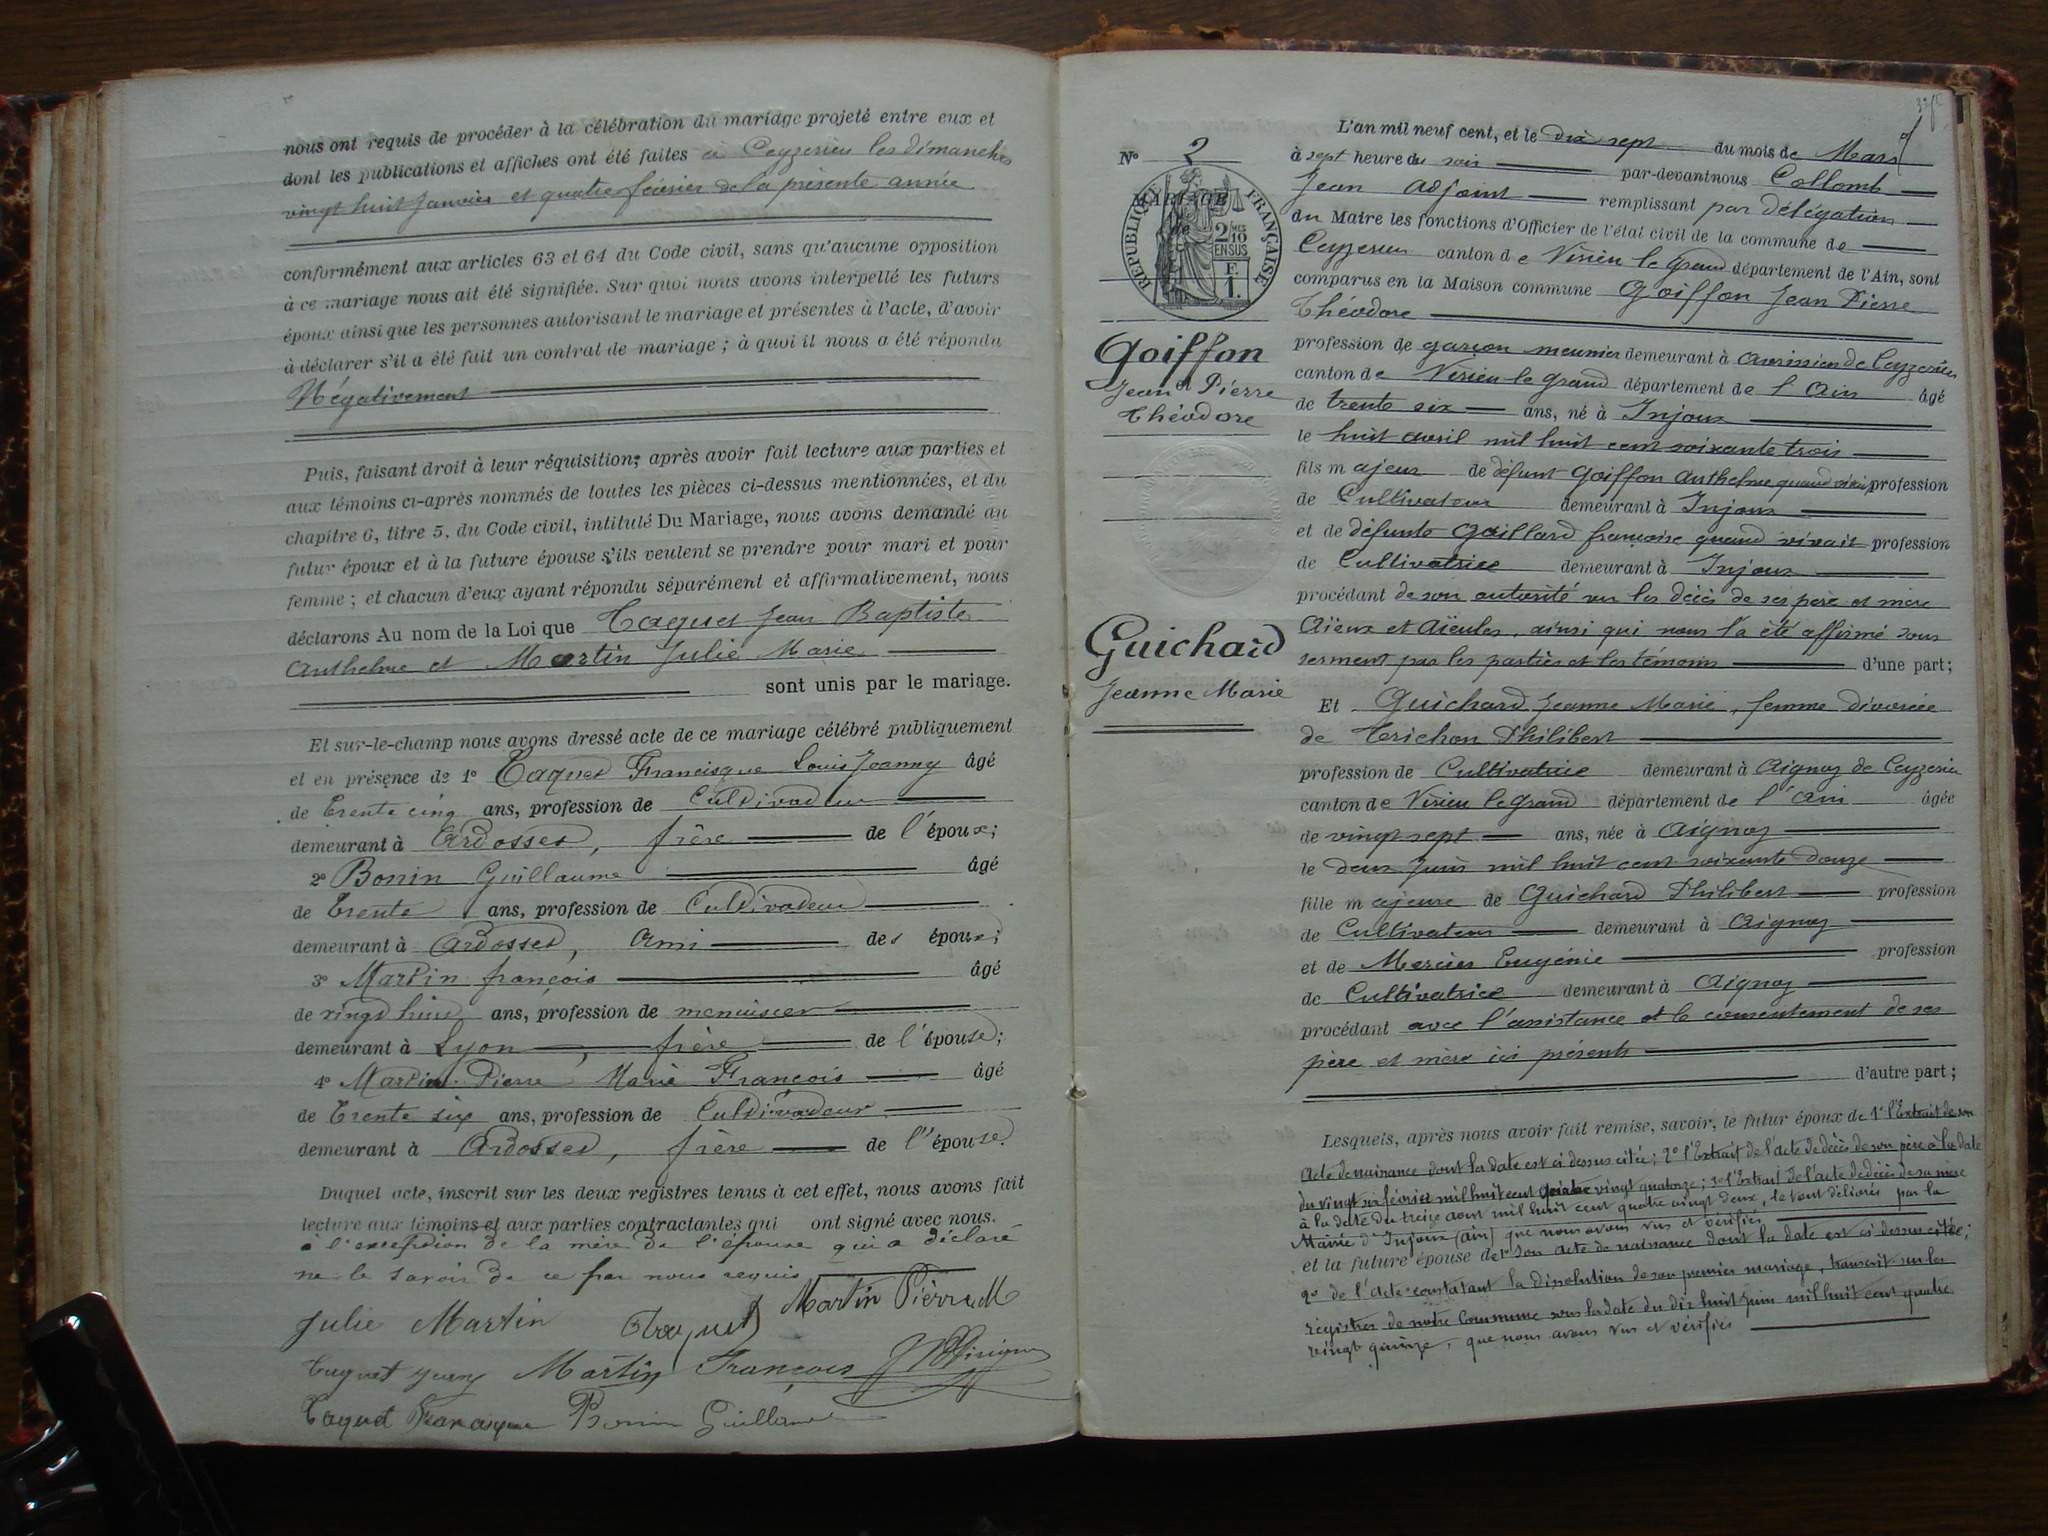 nous ont requis de procéder à la célébration du mariage projeté entre eux et
dont les publications et affiches ont été faites à Ceyzerieu les dimanches
vingt huit Janvier et quatre février de la présente année
conformément aux articles 63 et 64 du Code civil, sans qu'aucune opposition
à ce mariage nous ait été signifiée. Sur quoi nous avons interpellé les futurs
époux ainsi que les personnes autorisant le mariage et présentes à l'acte, d'avoir
à déclarer s'il a été fait un contrat de mariage ; à quoi il nous a été répondu
Négativement
Puis, faisant droit à leur réquisition; après avoir fait lecture aux parties et
aux témoins ci-après nommés de toutes les pièces ci-dessus mentionnées, et du
chapitre 6, titre 5, du Code civil, intitulé Du Mariage, nous avons demandé au
futur époux et à la future épouse s'ils veulent se prendre pour mari et pour
femme ; et chacun d'eux ayant répondu séparément et affirmativement, nous
déclarons Au nom de la Loi que Taquet Jean Baptiste
Anthelme et Martin Julie Marie
sont unis par le mariage.
Et sur-le-champ nous avons dressé acte de ce mariage célébré publiquement
et en présence de 1° Taquet Francisque Louis Joanny âgé
de Trente cinq ans, profession de Cultivateur
demeurant à Ardosset, frère de l'époux;
2° Bonin Guillaume âgé
de Trente ans, profession de Cultivateur
demeurant à Ardosset, Ami des époux;
3° Martin françois âgé
de vingt huit ans, profession de menuisier
demeurant à Lyon, frère de l'épouse;
4° Martin Pierre Marie François âgé
de Trente six ans, profession de Cultivateur
demeurant à Ardosset, frère de l'épouse.
Duquel acte, inscrit sur les deux registres tenus à cet effet, nous avons fait
lecture aux témoins et aux parties contractantes qui ont signé avec nous.
à l'exception de la mère de l'épouse qui a déclaré
ne le savoir de ce par nous requis
Julie Martin Taquet Martin Pierre M
Taquet Martin François
Taquet Francisque Bonin Guillaume
L'an mil neuf cent, et le dix sept du mois de Mars
à sept heure du soir par-devant nous Collomb
Jean Adjoint remplissant par délégation
du Maire les fonctions d'Officier de l'état civil de la commune de
Ceyzerieu canton de Virieu le Grand département de l'Ain, sont
comparus en la Maison commune Goiffon Jean Pierre
Théodore
profession de garçon meunier demeurant à Avrissieu de Ceyzerieu
canton de Virieu le Grand département de l'Ain âgé
de trente six ans, né à Injoux
le huit avril mil huit cent soixante trois
fils majeur de défunt Goiffon Anthelme quand vivait profession
de Cultivateur demeurant à Injoux
et de défunte Gaillard françoise quand vivait profession
de Cultivatrice demeurant à Injoux
procédant de son autorité vu les décès de ses père et mère
Aïeux et Aïeules, ainsi qui nous l'a été affirmé sous
serment par les parties et les témoins d'une part;
Et Guichard Jeanne Marie, femme divorcée
de Philibert
profession de Cultivatrice demeurant à Aignoz de Ceyzerieu
canton de Virieu le Grand département de l'Ain âgée
de vingt sept ans, née à Aignoz
le deux Juin mil huit cent soixante douze
fille majeure de Guichard Philibert profession
de Cultivateur demeurant à Aignoz
et de Mercier Eugénie profession
de Cultivatrice demeurant à Aignoz
procédant avec l'assistance et le consentement de ses
père et mère ici présents
d'autre part ;
Lesquels, après nous avoir fait remise, savoir, le futur époux de 1° l'Extrait de son
Acte de naissance dont la date est ci dessus citée; 2° l'Extrait de l'acte de décès de son père à la date
du vingt six février mil huit cent quatre vingt quatorze; 3° l'Extrait de l'acte de décès de sa mère
à la date du treize août mil huit cent quatre vingt deux, le tout délivrés par la
Mairie d'Injoux (ain) que nous avons vus et vérifiés
et la future épouse de 1° son acte de naissance dont la date est ci dessus citée;
2° de l'Acte constatant la dissolution de son premier mariage, transcrit sur les
régistres de notre Commune sous la date du dix huit Juin mil huit cent quatre
vingt quinze, que nous avons vus et vérifiés
N° 2
MARIAGE
de
RÉPUBLIQUE FRANÇAISE
2/10
EN SUS
F.
1.
Goiffon
Jean et Pierre
Théodore
Guichard
Jeanne Marie